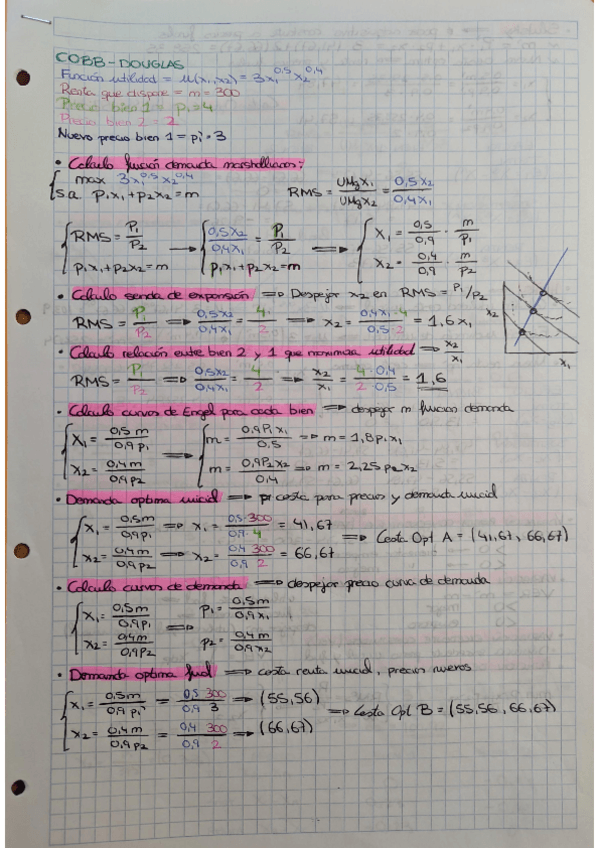 COBB-DOUGLAS
Función utilidad = u(x₁,x₂) = 3x₁^0,5 x₂^0,4
Renta que dispone = m = 300
Precio bien 1 = p₁ = 4
Precio bien 2 = 2
Nuevo precio bien 1 = p₁' = 3
• Calculo función demanda marshallianas:
{ max 3x₁^0,5 x₂^0,4
s.a p₁x₁+p₂x₂=m RMS = UMgx₁/UMgx₂ = 0,5x₂/0,4x₁
{ RMS = P₁/P₂ → { 0,5x₂/0,4x₁ = P₁/P₂ ⟹ { x₁ = 0,5/0,9 · m/P₁
p₁x₁+p₂x₂=m p₁x₁+p₂x₂=m x₂ = 0,4/0,9 · m/p₂
• Calculo senda de expansión ⟹ Despejar x₂ en RMS = P₁/P₂
RMS = P₁/P₂ ⟹ 0,5x₂/0,4x₁ = 4/2 ⟹ x₂ = 0,4x₁·4/0,5·2 = 1,6x₁
x₂
x₁
• Calculo relación entre bien 2 y 1 que maximiza utilidad ⟹ x₂/x₁
RMS = P₁/P₂ ⟹ 0,5x₂/0,4x₁ = 4/2 ⟹ x₂/x₁ = 4·0,4/2·0,5 = 1,6
• Calculo curvas de Engel para cada bien ⟹ despejar m funcion demanda
{ x₁ = 0,5m/0,9p₁ ⟹ { m = 0,9P₁x₁/0,5 ⟹ m = 1,8p₁x₁
x₂ = 0,4m/0,9p₂ m = 0,9P₂x₂/0,4 ⟹ m = 2,25p₂x₂
• Demanda optima inicial ⟹ pr cesta para precios y demanda inicial
{ x₁ = 0,5m/0,9p₁ ⟹ x₁ = 0,5·300/0,9·4 = 41,67
x₂ = 0,4m/0,9p₂ ⟹ x₂ = 0,4 300/0,9 2 = 66,67 ⟹ Cesta Opt A = (41,67, 66,67)
• Calculo curvas de demanda ⟹ despejar precio curva de demanda
{ x₁ = 0,5m/0,9p₁ ⟹ p₁ = 0,5m/0,9x₁
x₂ = 0,4m/0,9p₂ p₂ = 0,4m/0,9x₂
• Demanda optima final ⟹ cesta renta inicial, precios nuevos
{ x₁ = 0,5m/0,9p₁' = 0,5 300/0,9 3 ⟹ (55,56)
x₂ = 0,4m/0,9p₂ = 0,4 300/0,9 2 ⟹ (66,67) ⟹ Cesta Opt B = (55,56, 66,67)